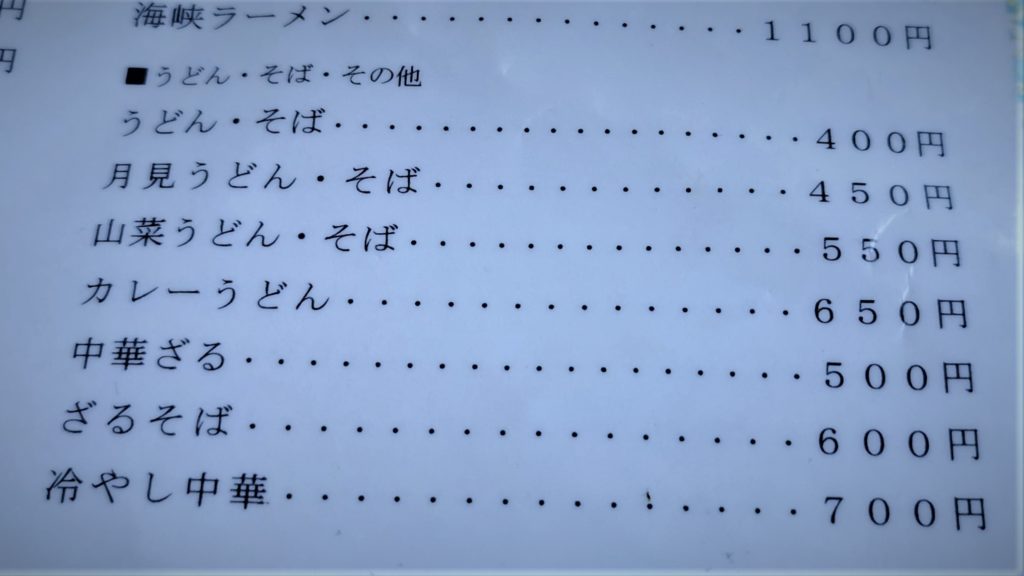 円
海峡ラーメン・・・・・・・・・・・・・・・・・1100円
円
■うどん・そば・その他
うどん・そば・・・・・・・・・・・・・・・・・・・400円
月見うどん・そば・・・・・・・・・・・・・・450円
山菜うどん・そば・・・・・・・・・・・・・・・550円
カレーうどん・・・・・・・・・・・・・・・・・650円
中華ざる・・・・・・・・・・・・・・・・・・・・500円
ざるそば・・・・・・・・・・・・・・・・・・・・600円
冷やし中華・・・・・・・・・・・・・・・・・・700円